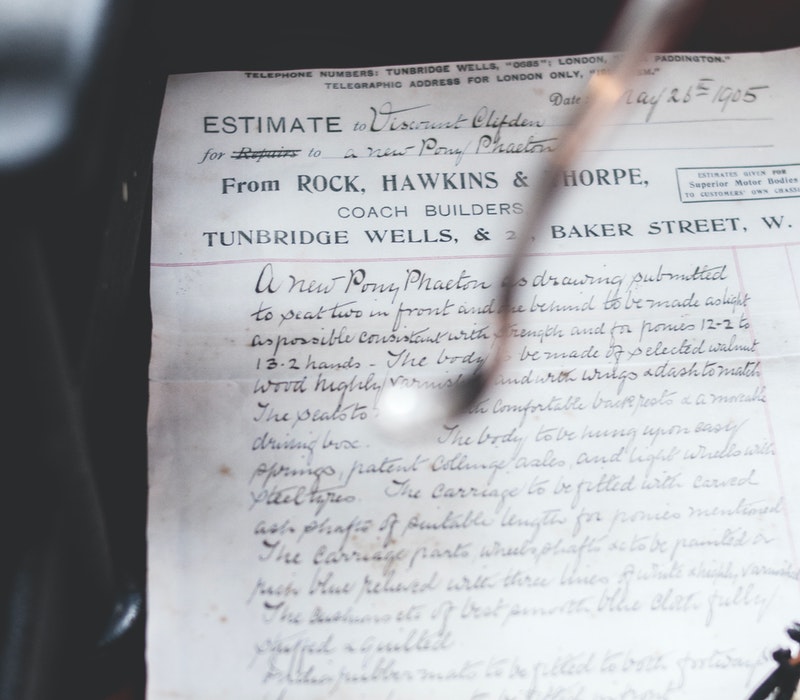 TELEPHONE NUMBERS: TUNBRIDGE WELLS, "0685"; LONDON, PADDINGTON."
TELEGRAPHIC ADDRESS FOR LONDON ONLY,
Date May 26th 1905
ESTIMATE to Viscount Clifden
for Repairs to a new Pony Phaeton
From ROCK, HAWKINS & THORPE,
ESTIMATES GIVEN FOR
Superior Motor Bodies
TO CUSTOMERS' OWN CHASSIS
COACH BUILDERS
TUNBRIDGE WELLS, & 2 , BAKER STREET, W.
A new Pony Phaeton as drawing submitted
to seat two in front and one behind to be made as light
as possible consistent with strength and for ponies 12-2 to
13-2 hands - The body to be made of selected walnut
wood highly varnished and with wings & dash to match
The seats to with comfortable backrests & a moveable
driving box. The body to be hung upon easy
springs, patent Collinge axles, and light wheels with
steel tyres. The carriage to be fitted with carved
ash shafts of suitable length for ponies mentioned
The carriage parts wheels, shafts &c to be painted a
rich blue relieved with three lines of white & highly varnished
The cushions etc of best smooth blue cloth fully
stuffed & quilted
India rubber mats to be fitted to both footways
to be fitted